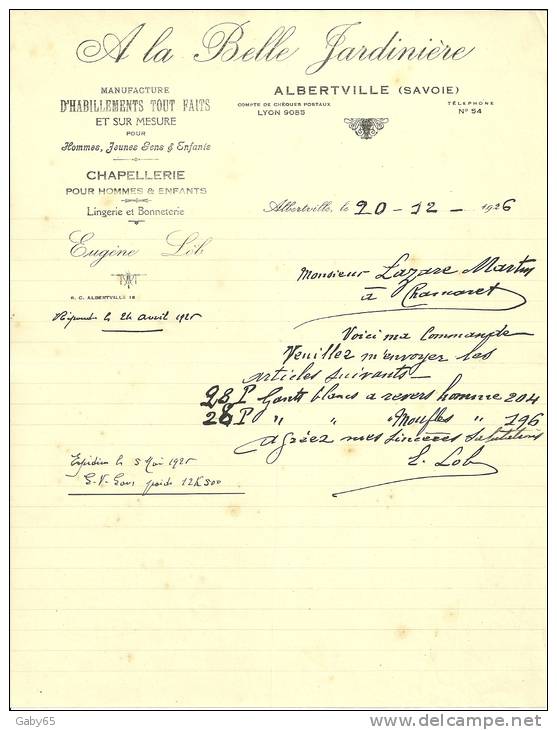 A la Belle Jardinière
MANUFACTURE
D'HABILLEMENTS TOUT FAITS
ET SUR MESURE
POUR
Hommes, Jeunes Gens & Enfants
CHAPELLERIE
POUR HOMMES & ENFANTS
Lingerie et Bonneterie
Eugène Löb
R. C. ALBERTVILLE 18
ALBERTVILLE (SAVOIE)
COMPTE DE CHÈQUES POSTAUX
LYON 9085
TÉLÉPHONE
N° 54
Albertville, le 20-12-1926
Monsieur Lazare Martin
à Chamaret
Répondu le 24 avril 192
Voici ma Commande
Veuillez m'envoyer les
articles suivants-
28 P Gants blancs a revers homme 204
28 P " " " Moufles " 196
agréez mes sincères Salutations
E. Lob
Expédiée le 5 Mai 192
G.V. poids 12K500
Gaby65
www.delcampe.net